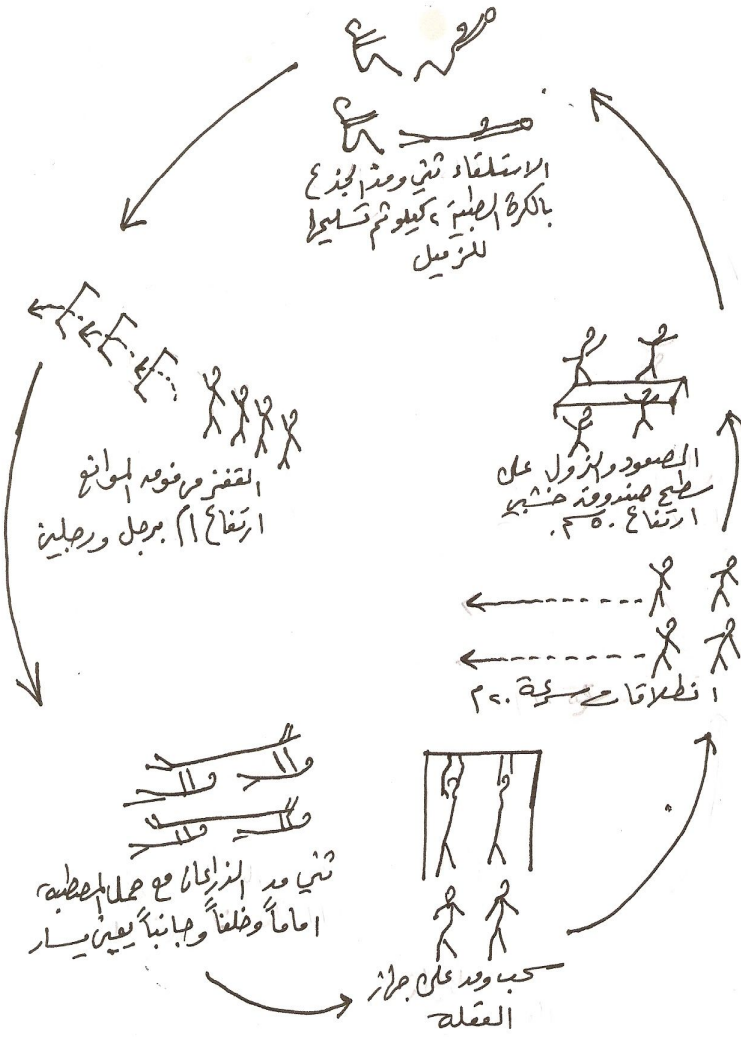 الاستلقاء ثني ومد الجذع
بالكرة الطبية ٢ كيلو ثم تسليمها
للزميل
القفز من فوق الموانع
ارتفاع ١م برجل ورجلين
الصعود والنزول على
سطح صندوق خشبي
ارتفاع ٥٠سم.
انطلاقات سرعة ٢٠م
ثني مد الذراعان مع حمل المصطبة
اماماً وخلفاً وجانباً يمين يسار
سحب ومد على جهاز
العقلة